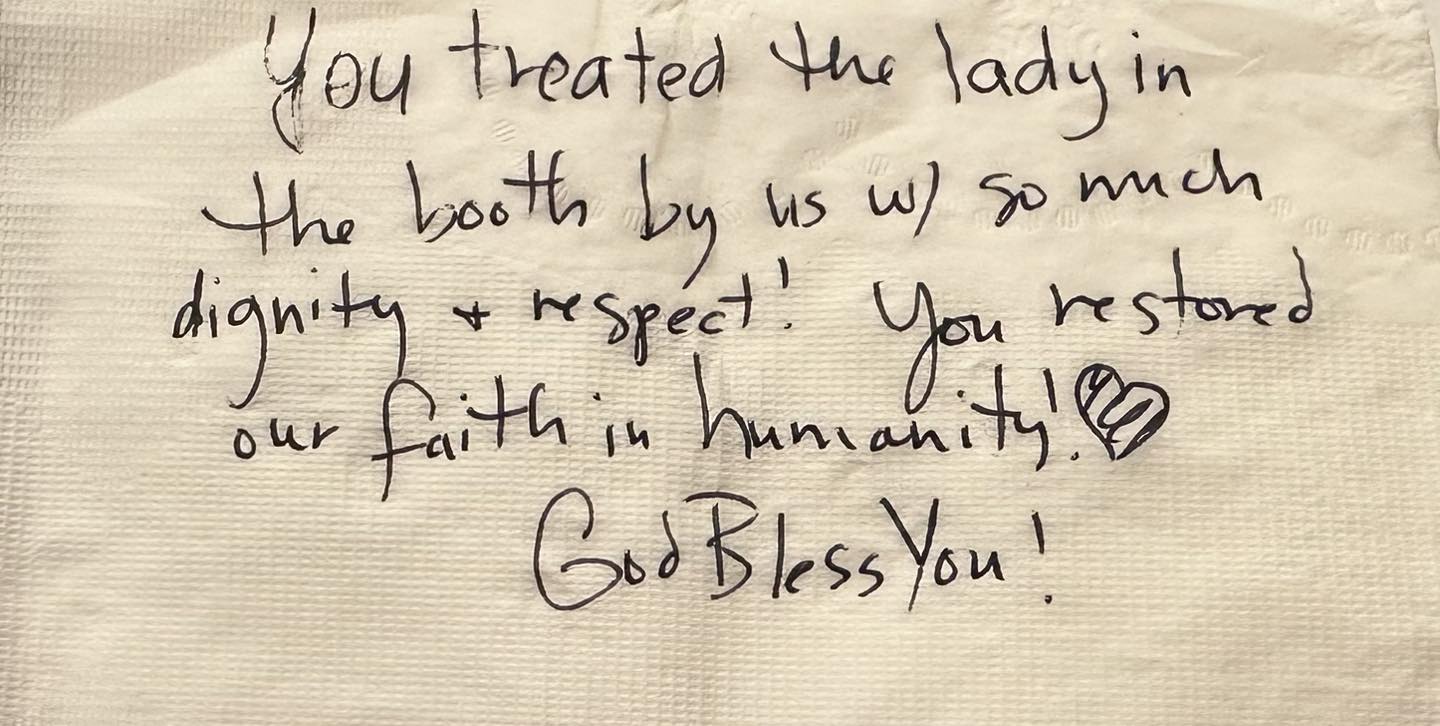 You treated the lady in
the booth by us w/ so much
dignity + respect! You restored
our faith in humanity! ♥
God Bless You!